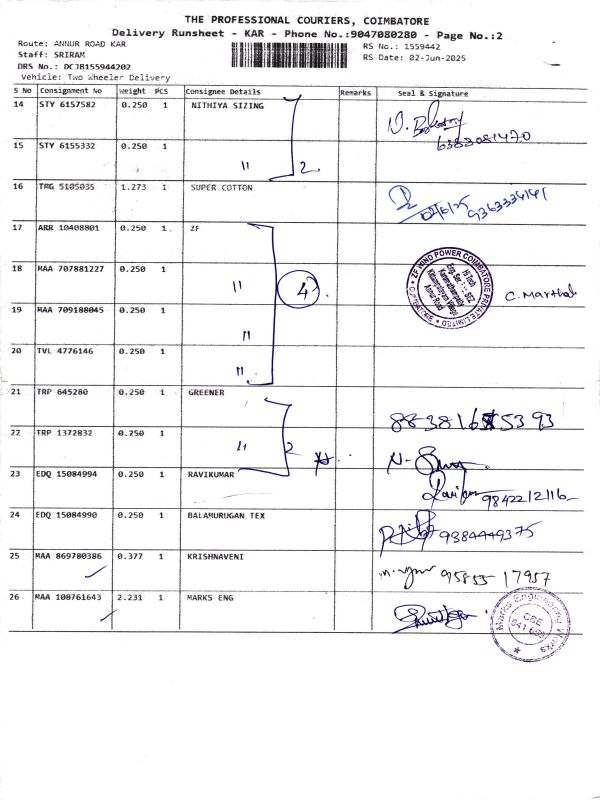 THE PROFESSIONAL COURIERS, COIMBATORE
Delivery Runsheet - KAR - Phone No.:9047080280 - Page No.:2
Route: ANNUR ROAD KAR
RS No.: 1559442
Staff: SRIRAM
RS Date: 02-Jun-2025
DRS No.: DCJB155944202
Vehicle: Two Wheeler Delivery
S No Consignment No Weight PCS Consignee Details Remarks Seal & Signature
14 STY 6157582 0.250 1 NITHIYA SIZING
6383081470
15 STY 6155332 0.250 1 " 2
16 TMG 5105035 1.273 1 SUPER COTTON
02/6/25 9363334141
17 ARR 10408801 0.250 1 ZF
18 MAA 707881227 0.250 1 " 4
ZF WIND POWER COIMBATORE PRIVATE LIMITED
C. Marthal
19 MAA 709188045 0.250 1 "
20 TVL 4776146 0.250 1 "
21 TRP 645280 0.250 1 GREENER
88381655393
22 TRP 1372832 0.250 1 " 2
23 EDQ 15084994 0.250 1 RAVIKUMAR
9842212116
24 EDQ 15084990 0.250 1 BALAMURUGAN TEX
9384449375
25 MAA 869780386 0.377 1 KRISHNAVENI
95855 17957
26 MAA 108761643 2.231 1 MARKS ENG
Marks Engineering Works
CBE